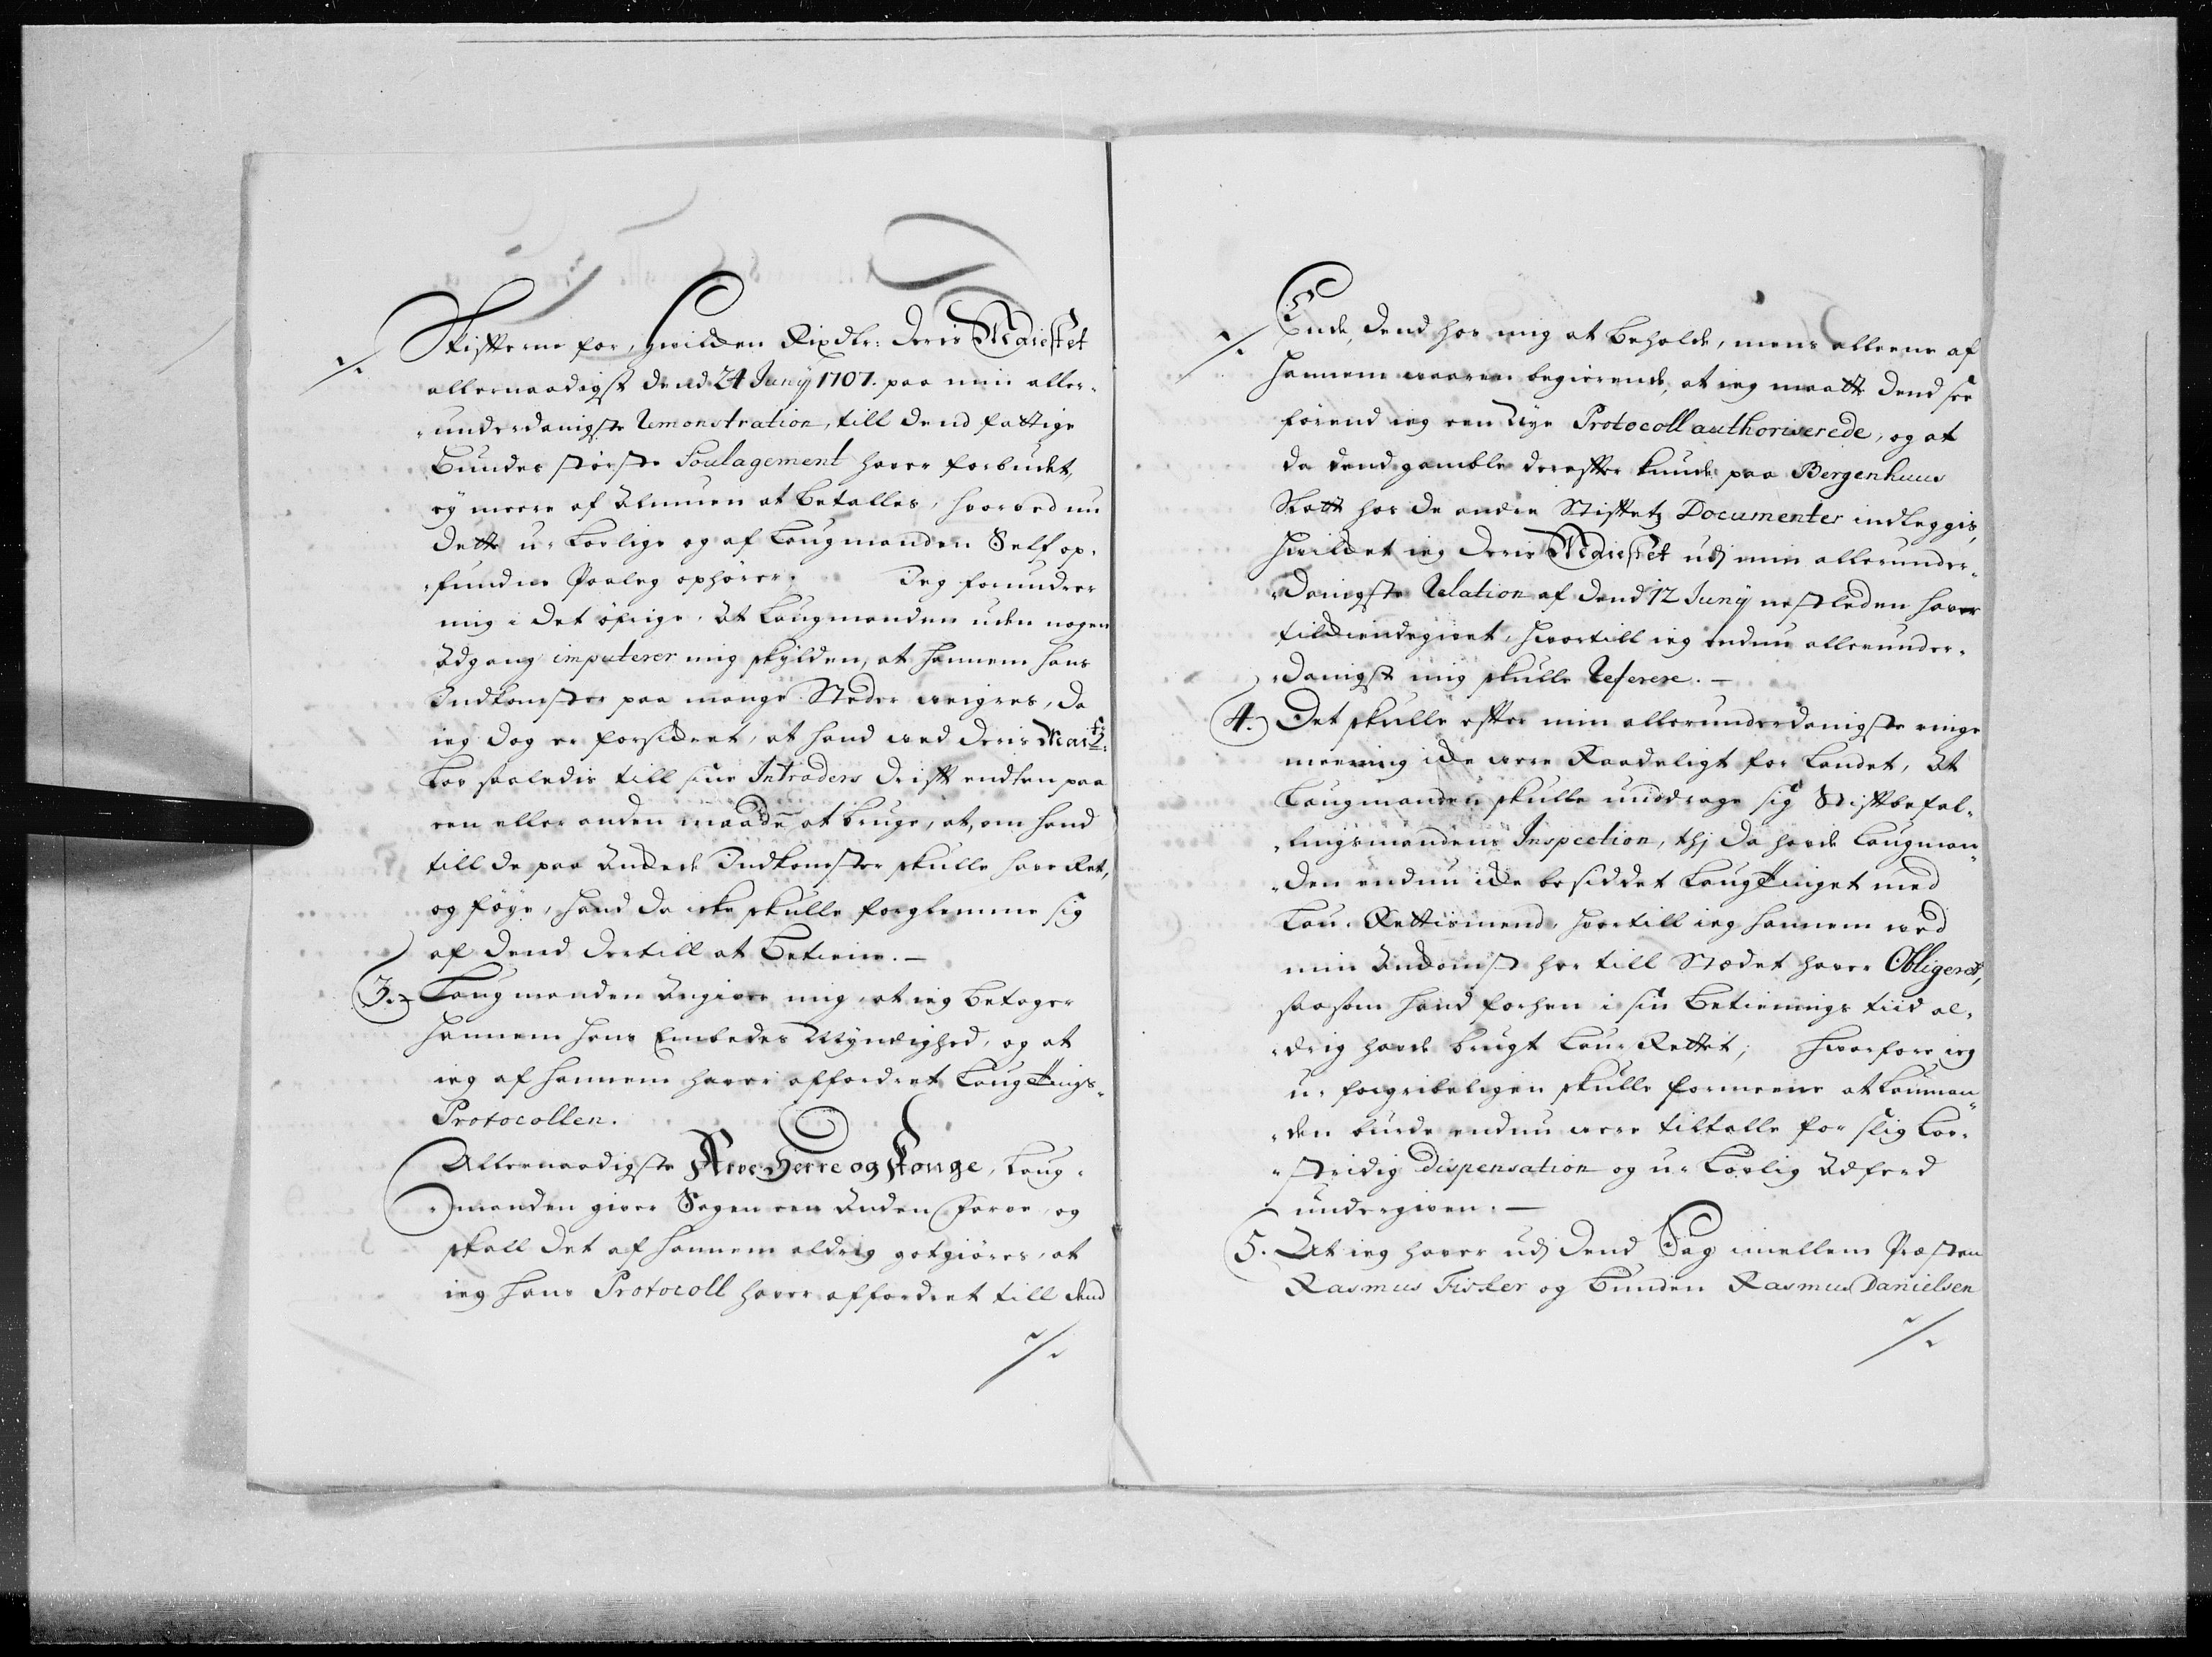 ⁒ Skifterne for, hvilken Rixdlr: Deris Maiestet
allernaadigst dend 24 Junÿ 1707. paa min aller-
underdanigste Remonstration, till dend fattige
Bundes störste Soulagement haver forbudet,
eÿ meere af Almuen at betalles, hvorved nu
dette u-lovlige og af Laugmanden Self op-
fundne Paaleg ophörer. Jeg forundrer
mig i det öfrige, At Laugmanden uden nogen
Adgang imputerer mig skÿlden, at hannem hans
Indkomster paa mange Steder weigres, da
ieg dog er forsickret, at hand wed Deris Maitz:
Lov saaledis till sine Intraders drift endten paa
een eller anden maade at bruge, at, om hand
till de paa Anckede Indkomster skulle have Ret,
og föye, hand da icke skulle forglemme sig
af dend dertill at betiene. —
3. Laugmanden Angiver mig, at ieg betager
hannem hans Embedes Mÿndighed, og at
ieg af hannem haver affordret Laugtings-
Protocollen.
Allernaadigste Arve Herre og Konge, Laug-
manden giver Sagen een Anden farve, og
skall det af hannem aldrig gotgiöres, at
ieg hans Protocoll haver affordret till dend
⁒
⁒ Ende, dend hos mig at beholde, mens alleene af
hannem waaren begierende, at ieg maatte dend see
förend ieg een Nye Protocoll authoriserede, og at
da dend gamble derefter kunde paa Bergenhuus
Slott hos de andre Stiftetz Documenter indleggis,
hvilcket ieg Deris Maiestet udj min allerunder-
danigste Relation af dend 12 Junÿ nestleden haver
tilkiendegivet, hvortill ieg endnu allerunder-
danigst mig skulle Referere. —
4. Det skulle efter min allerunderdanigste ringe
meening icke were Raadeligt for Landet, At
Laugmanden skulle unddrage sig Stiftbefal-
lingsmandens Inspection, thj da havde Laugman-
den endnu icke besiddet Laugtinget med
Lau-Rettismend, hvortill ieg hannem wed
min Anckomst her till Stædet haver Obligeret,
saasom hand forhen i sin Betienings tiid al-
drig havde brugt Lau-Rettet; Hvorfore ieg
u-forgribeligen skulle formeene at Lauman-
den burde endnu were tiltalle for slig Lov-
stridig dispensation og u-Lovlig Adferd
undergiven. —
5. At ieg haver udj dend Sag imellem Præsten
Rasmus Fisker og Bunden Rasmus Danielsen
⁒